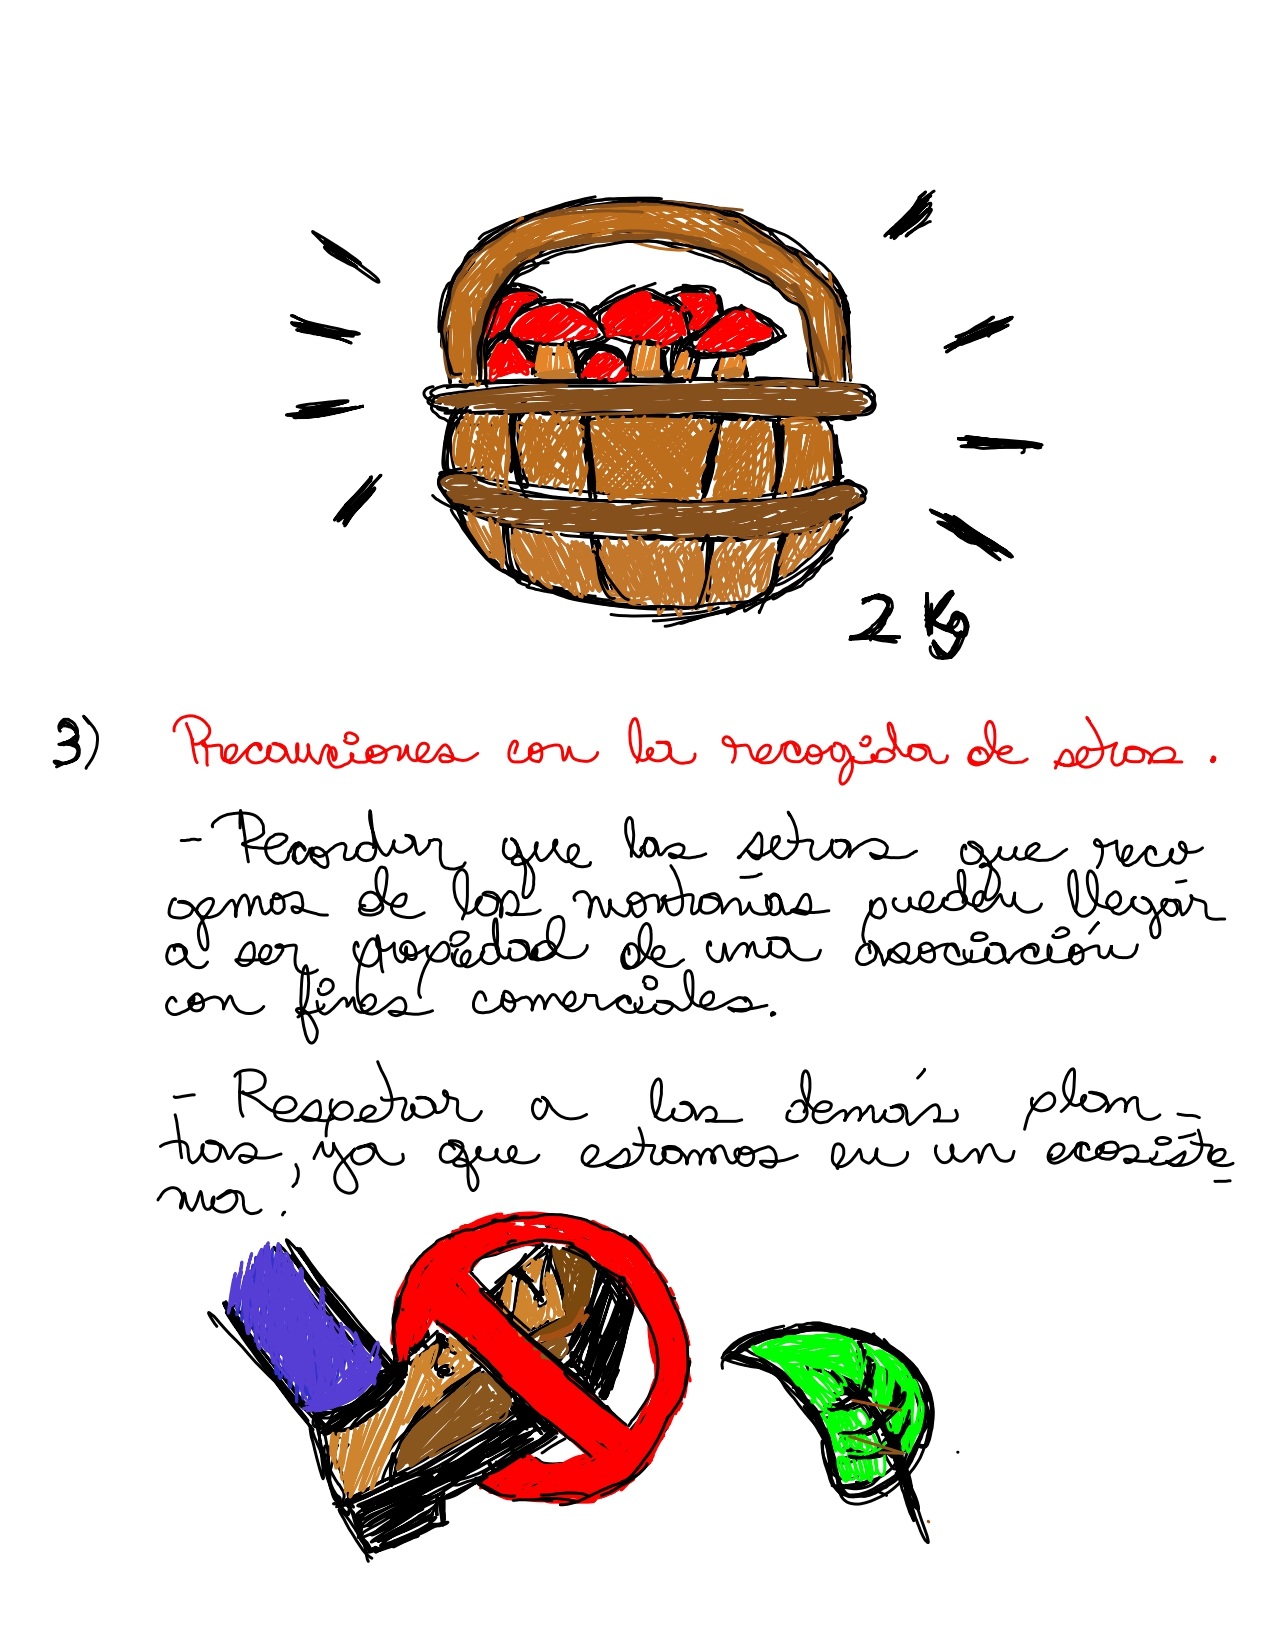 2 Kg
3) Precauciones con la recogida de setas.
- Recordar que las setas que reco
gemos de las montañas pueden llegar
a ser propiedad de una asociación
con fines comerciales.
- Respetar a las demás plan-
tas, ya que estamos en un ecosiste
ma!